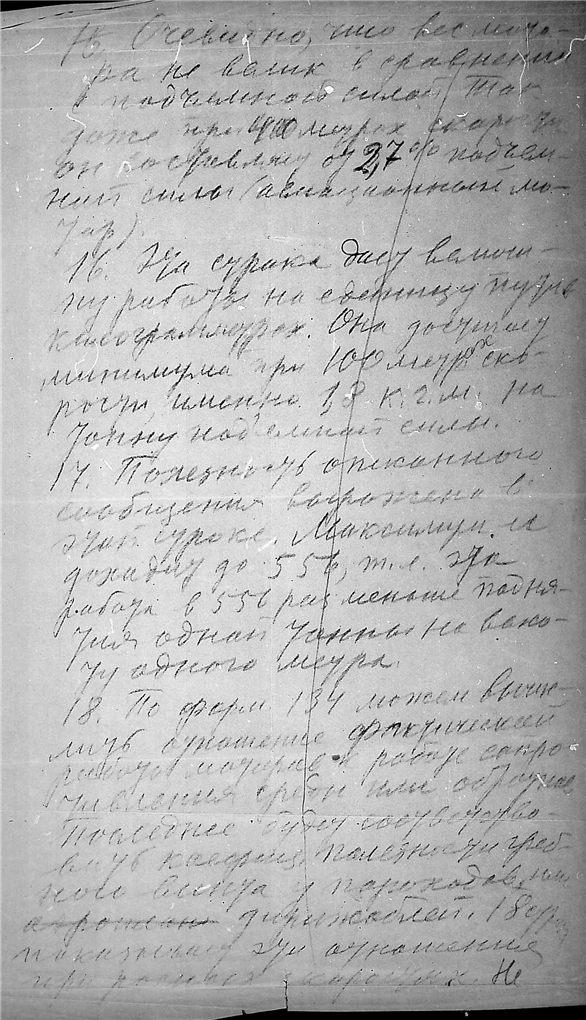 15. Очевидно, что вес мото-
ра не велик в сравнении
с подъемной силой. Так
даже при 400 метрах скорости
он составляет от 2,7% подъем-
ной силы (авиационный мо-
тор).
16. Эта строка дает величи-
ну работы на единицу пути в
килограмметрах. Она достигает
минимума при 100 метрах ско-
рости, именно 1,8 к.г.м. на
тонну подъемной силы.
17. Полезность описанного
сообщения выражена в
этой строке. Максимум ее
доходит до 556, т.е. эта
работа в 556 раз меньше подня-
тия одной тонны на высо-
ту одного метра.
18. По форм. 134 можем вычис-
лить отношение фактической
работы моторов к работе сопро-
тивления среды или обратное
Последнее будет соответство-
вать коефиц. полезности греб-
ного винта у пароходов, или
аэроплан дирижаблей. 18 стр.
показывает эти отношения
при разных скоростях. Не